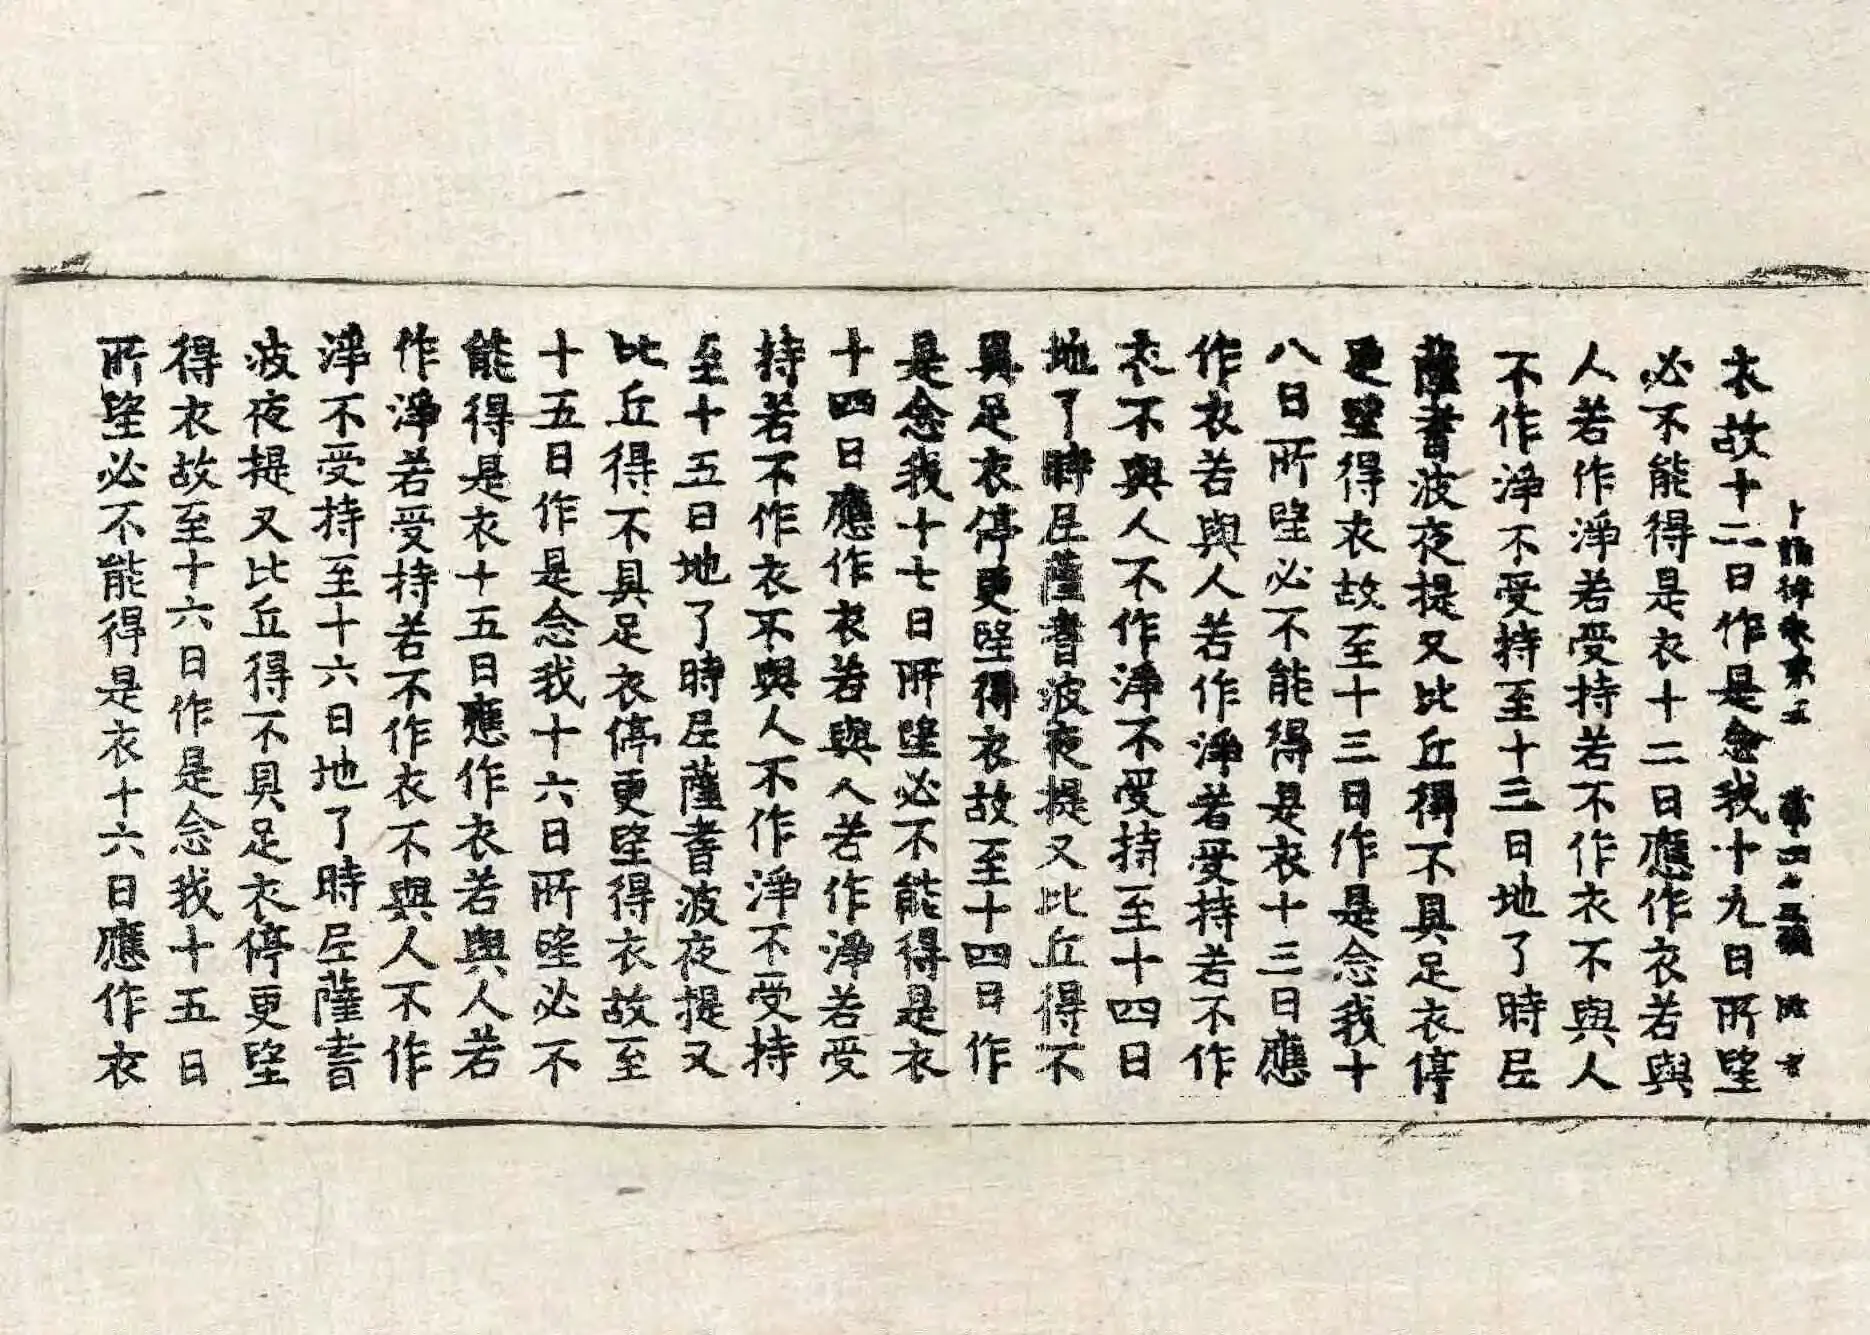 十誦律卷第五
衣故十二日作是念我十九日所望
必不能得是衣十二日應作衣若與
人若作淨若受持若不作衣不與人
不作淨不受持至十三日地了時尼
薩耆波夜提又比丘得不具足衣停
更望得衣故至十三日作是念我十
八日所望必不能得是衣十三日應
作衣若與人若作淨若受持若不作
衣不與人不作淨不受持至十四日
地了時尼薩耆波夜提又比丘得不
具足衣停更望得衣故至十四日作
是念我十七日所望必不能得是衣
十四日應作衣若與人若作淨若受
持若不作衣不與人不作淨不受持
至十五日地了時尼薩耆波夜提又
比丘得不具足衣停更望得衣故至
十五日作是念我十六日所望必不
能得是衣十五日應作衣若與人若
作淨若受持若不作衣不與人不作
淨不受持至十六日地了時尼薩耆
波夜提又比丘得不具足衣停更望
得衣故至十六日作是念我十五日
所望必不能得是衣十六日應作衣